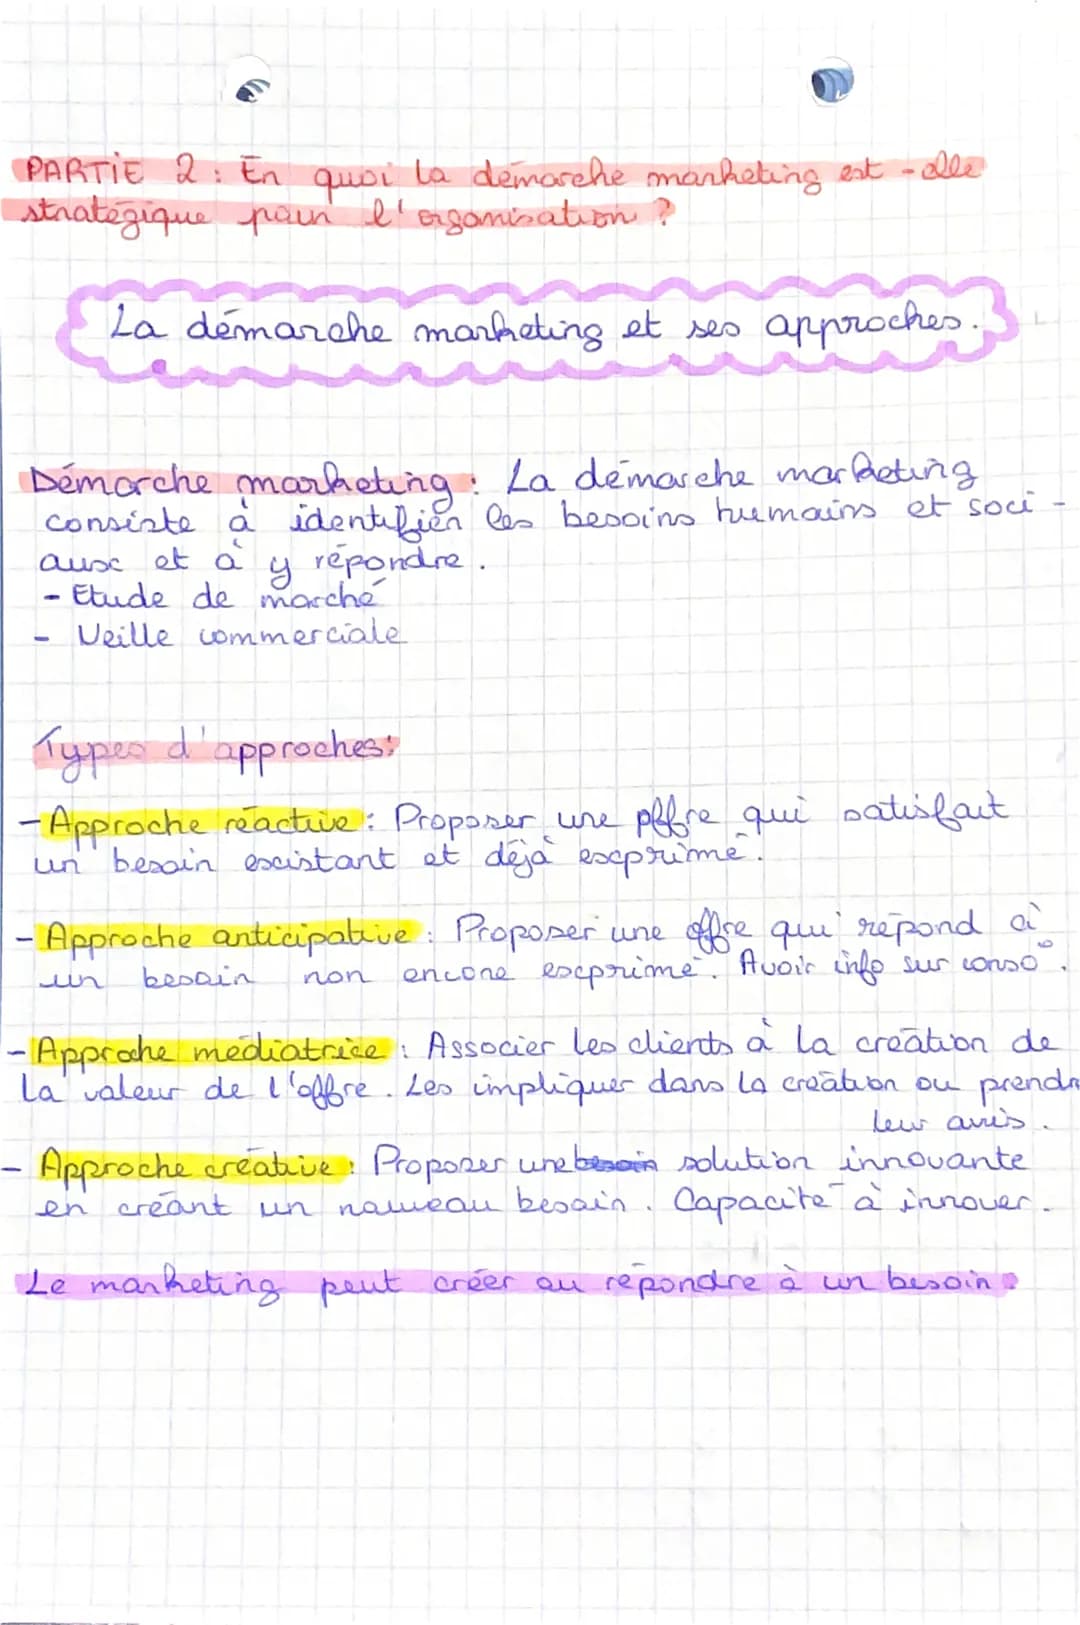 PARTIE 2 : En quoi la démarche marketing est-elle
stratégique pour l'organisation ?
La démarche marketing et ses approches.
Démarche marketing : La démarche marketing
consiste à identifier les besoins humains et soci-
aux et à y répondre.
- Etude de marché
- Veille commerciale
Types d'approches :
- Approche réactive : Proposer une offre qui satisfait
un besoin existant et déjà exprimé.
- Approche anticipative : Proposer une offre qui répond à
un besoin non encore exprimé. Avoir info sur conso°.
- Approche médiatrice : Associer les clients à la création de
la valeur de l'offre. Les impliquer dans la création ou prendre
leur avis.
- Approche créative : Proposer une besoin solution innovante
en créant un nouveau besoin. Capacité à innover.
Le marketing peut créer ou répondre à un besoin.